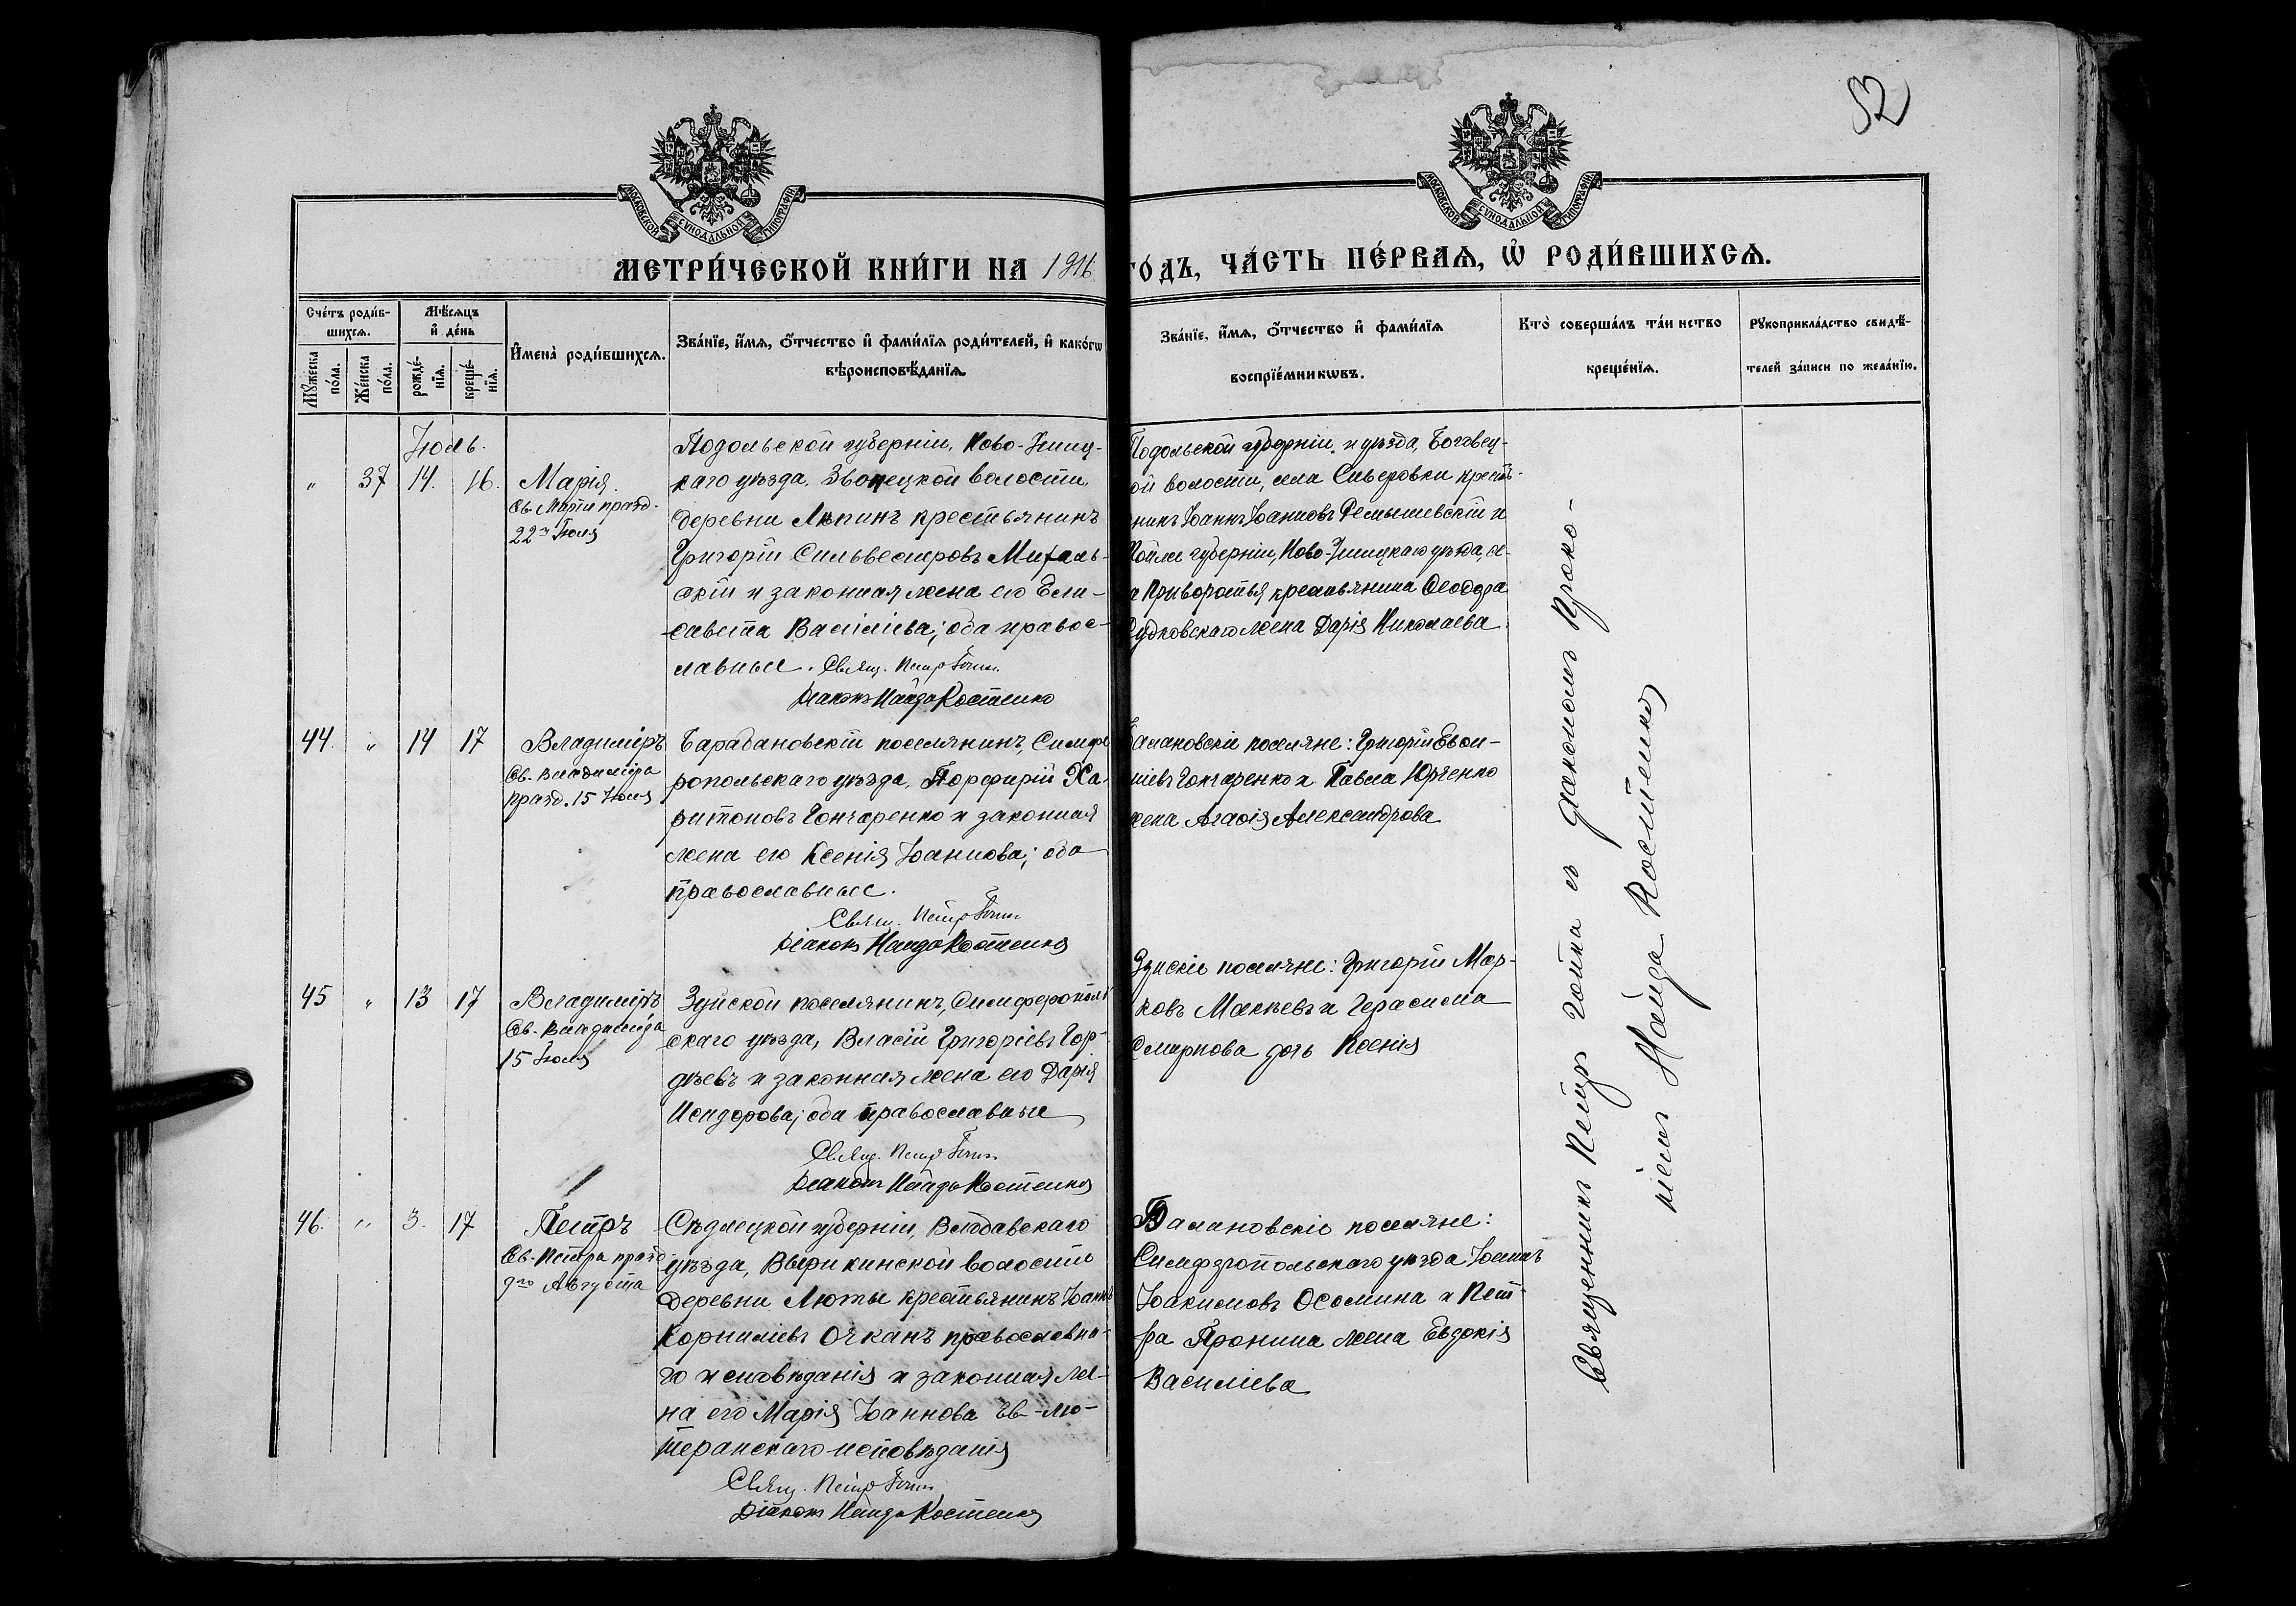 52
МОСКОВСКОЙ СѴНОДАЛЬНОЙ ТИПОГРАФІИ
МОСКОВСКОЙ СѴНОДАЛЬНОЙ ТИПОГРАФІИ
МЕТРИ́ЧЕСКОЙ КНИ́ГИ НА 1916
ГО́ДЪ, ЧА́СТЬ ПЕ́РВАѦ, Ѡ҆ РОДИ́ВШИХСѦ.
Сче́тъ роди́в-
шихсѧ.
Мꙋ́жеска по́ла.
Же́нска по́ла.
Мѣ́сѧцъ
и҆ де́нь
рожде́-
нїѧ.
креще́-
нїѧ.
И҆мена̀ роди́вшихсѧ.
Зва́нїе, и҆́мѧ, ѻ҆́тчество и҆ фами́лїѧ роди́телей, и҆ како́гѡ
вѣроисповѣ́данїѧ.
Зва́нїе, и҆́мѧ, ѻ҆́тчество и҆ фами́лїѧ
воспрїе́мникѡвъ.
Кто̀ соверша́лъ та́инство
креще́нїѧ.
Рꙋкоприкла́дство свидѣ́-
телей за́писи по жела́нїю.
Іюль.
„ 37 14. 16. Марія.
Св. Маріи празд.
22го Іюля
Подольской губерніи, Ново-Ушиц-
каго уѣзда, Звонецкой волости,
деревни Ляпинъ крестьянинъ
Григорій Сильвестровъ Михаль-
скій и законная жена его Ели-
савета Василіева; оба правос-
лавные. Свящ. Петръ Гоинъ
Діаконъ Найда Костенко
Подольской губерніи и уѣзда,
ой волости, села Сиверовки крестья-
нинъ Іоаннъ Іоанновъ Демышевскій и
губерніи, Ново-Ушицкаго уѣзда, се-
а Приворотья крестьянина Ѳеодора
Рудковскаго жена Дарія Николаева.
44. „ 14 17 Владиміръ
Св. Владиміра
празд. 15 Іюля
Барабановскій поселянинъ, Симфе
ропольскаго уѣзда, Порфирій Ха-
ритоновъ Гончаренко и законная
жена его Ксенія Іоаннова; оба
православные.
Свящ. Петръ Гоинъ
Діаконъ Найда Костенко
Балановскіе поселяне: Григорій Евои-
міевъ Гончаренко и Павла Юрченко
жена Агаѳія Александрова
45 „ 13 17 Владиміръ
Св. Владиміра
15 Іюля
Зуйской поселянинъ, Симферополь
скаго уѣзда, Власій Григоріевъ Гор-
дѣевъ и законная жена его Дарія
Исидорова; оба православные
Свящ. Петръ Гоинъ
Діаконъ Найда Костенко
Зуйскіе поселяне: Григорій Мар-
ковъ Макѣевъ и Герасима
Смирнова дочь Ксенія
46. „ 3. 17 Петръ
Св. Петра празд
9го Августа
Сѣдлецкой губерніи, Влодавскаго
уѣзда, Вырикинской волости
деревни Люты крестьянинъ Іоаннъ
Корниліевъ Очканъ православна-
го исповѣданія и законная же-
на его Марія Іоаннова Ев-лю-
теранскаго исповѣданія
Свящ. Петръ Гоинъ
Діаконъ Найда Костенко
Балановскіе поселяне:
Симферопольскаго уѣзда Іоаннъ
Іоакимовъ Осомина и Пет-
ра Пронина жена Евдокія
Василіева
Священникъ Петръ Гоинъ съ діакономъ Проко-
піемъ Найда Костенко